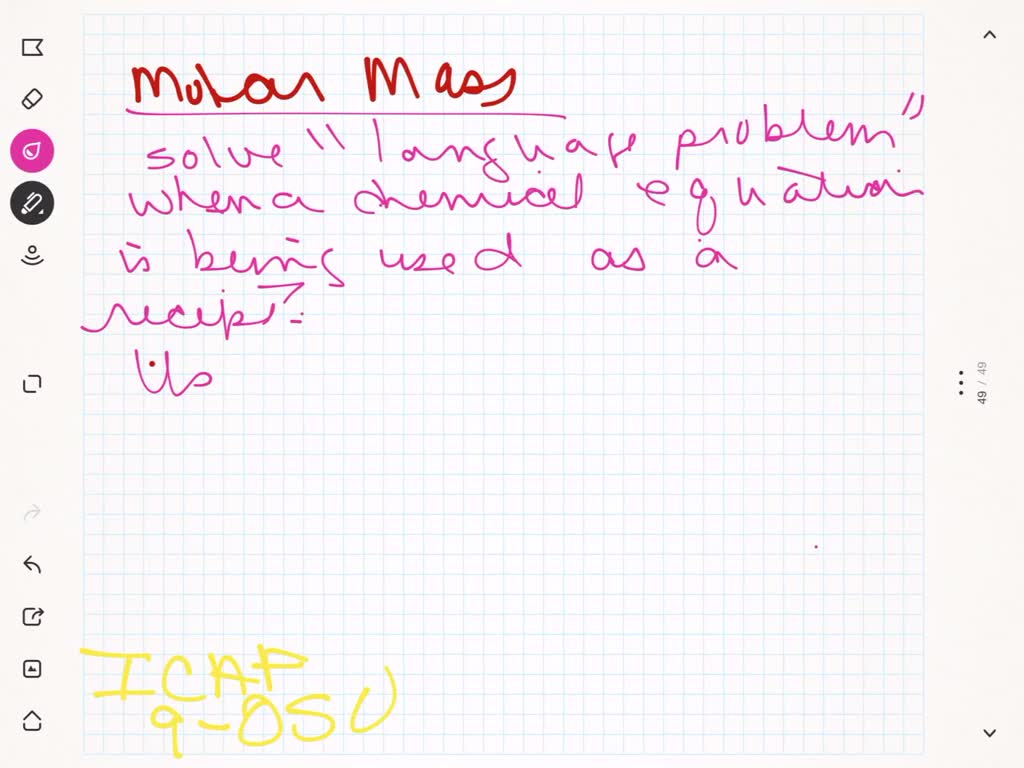 Molar Mass
solve "language problem"
when a chemical equation
is being used as a
recipe?
Us
ICAP
9-OSU
49 / 49